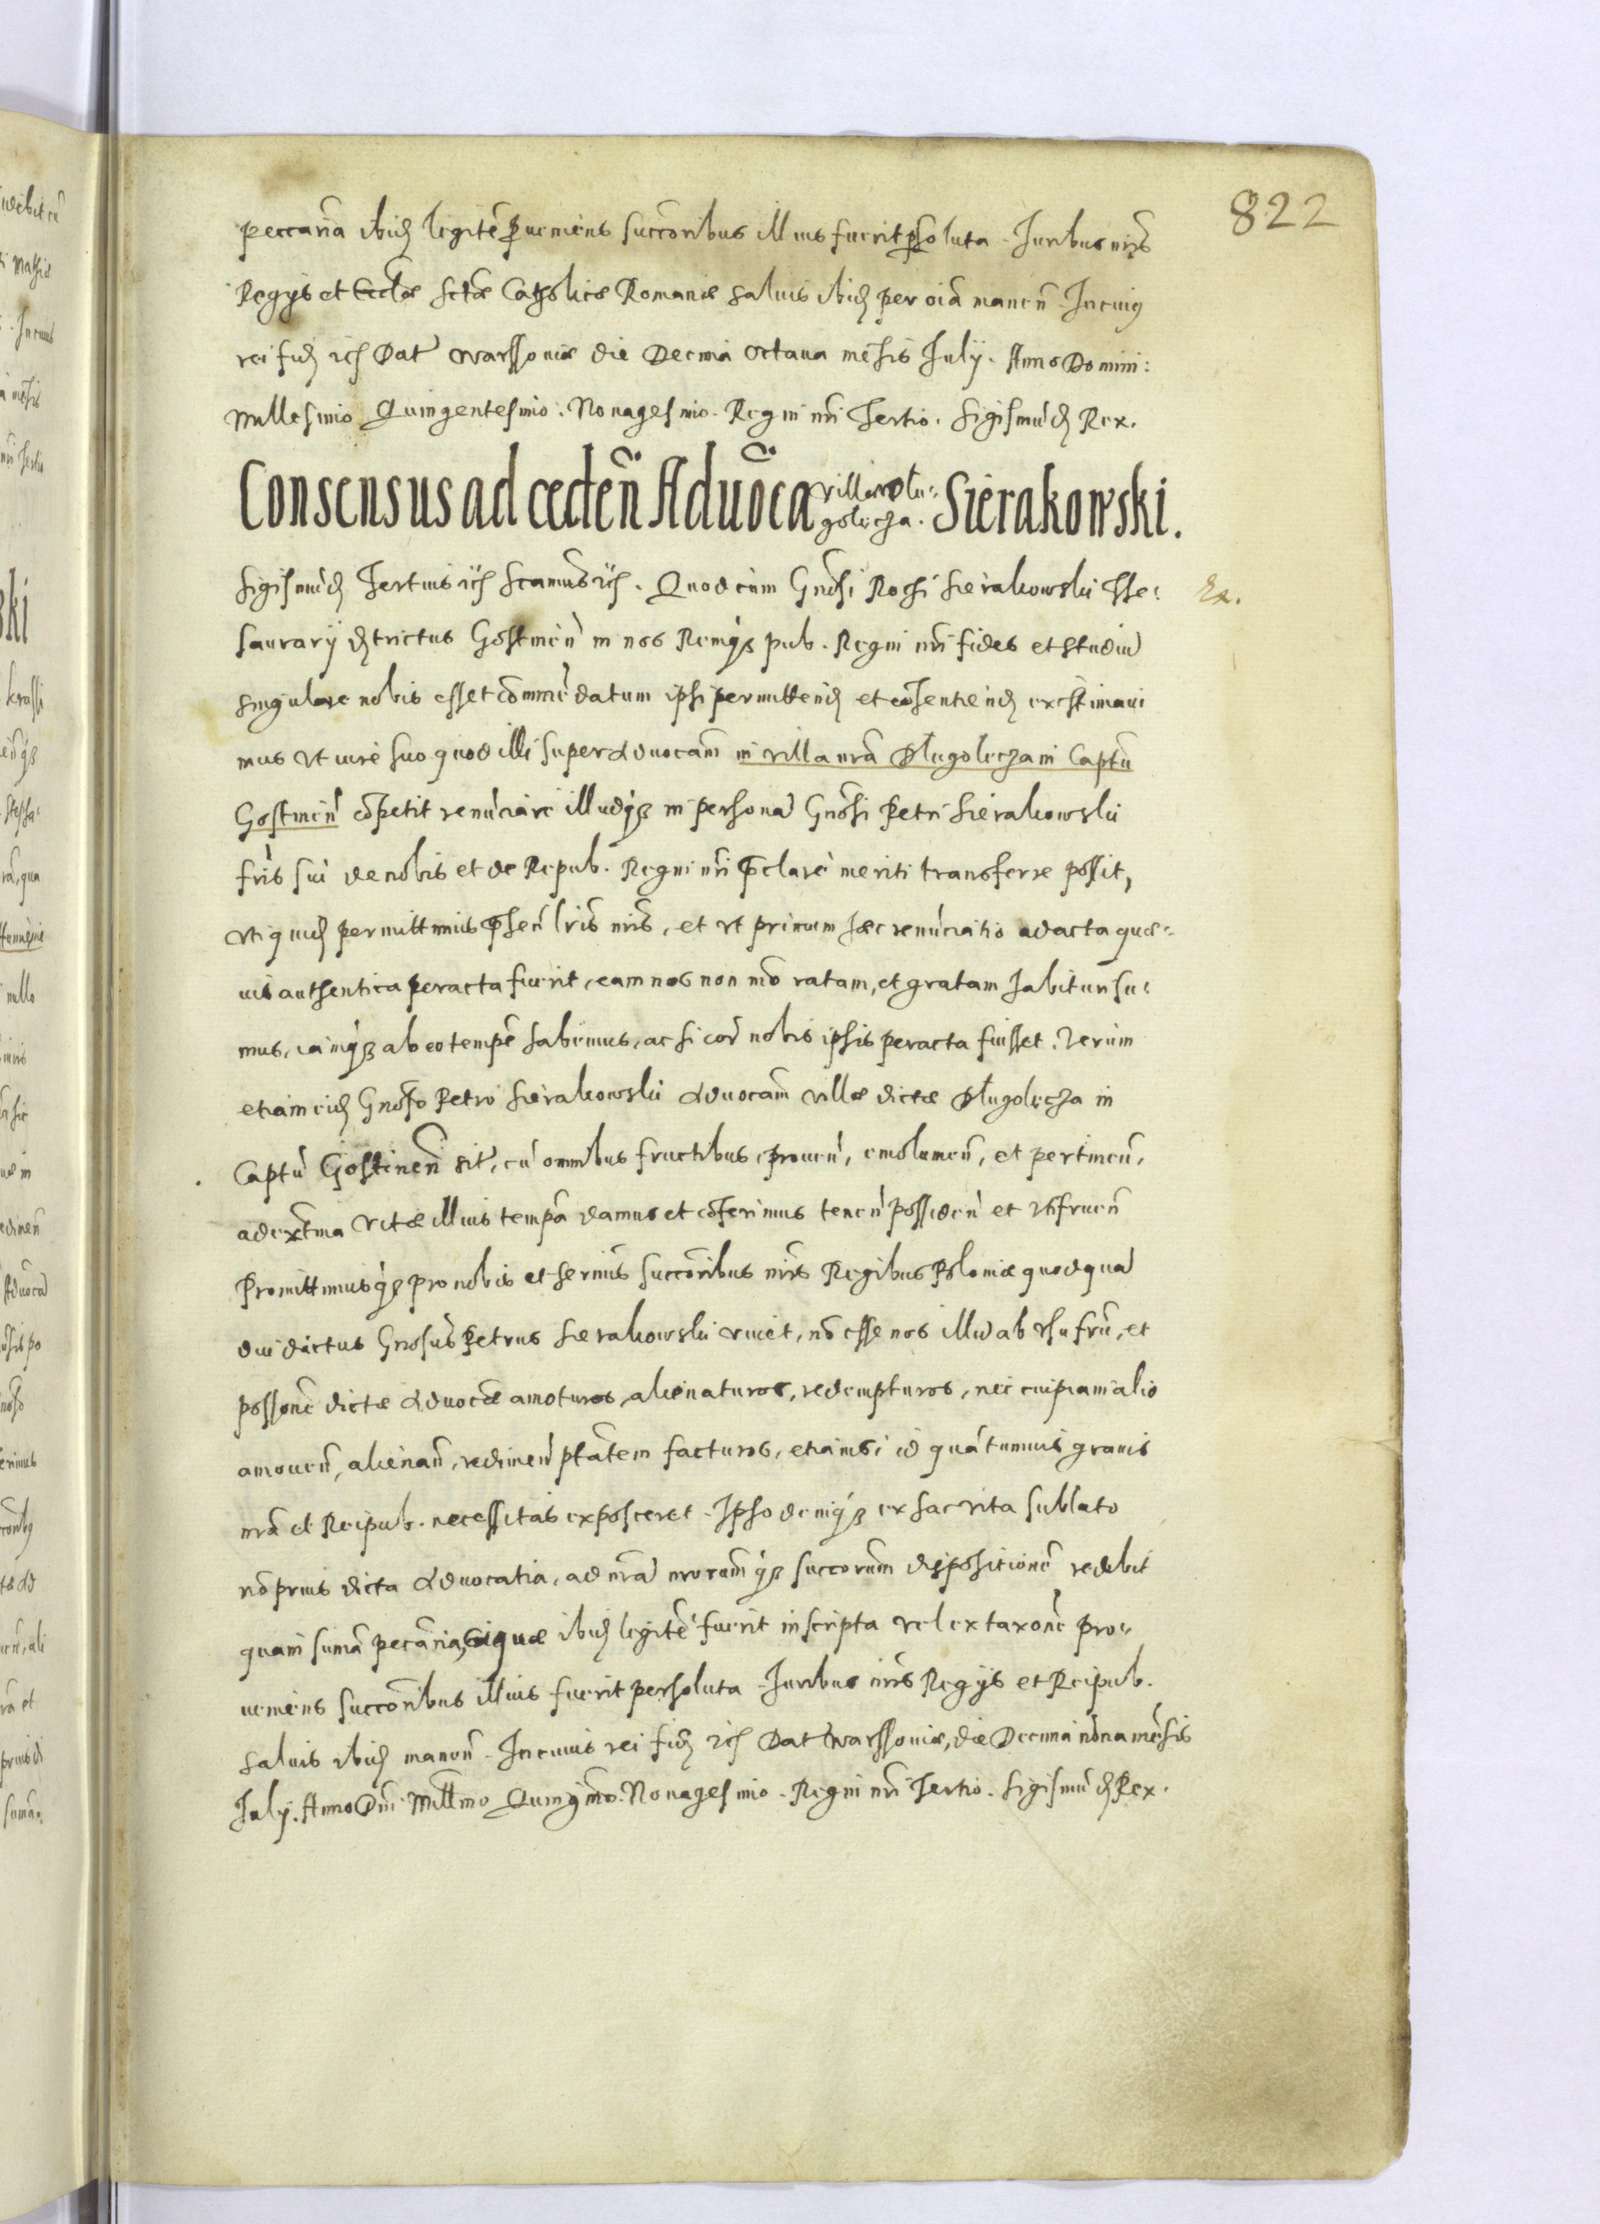 822
peccaria ibid legite proueniens succoribus illius fuerit persoluta. Iuribus nris
Regys et Eccliæ sctæ Catholicæ Romanæ saluis ibid per oia manen. In cuiq
rei fid etc Dat Warssouiæ die Decima Octaua mesis July. Anno Domini:
Millesimo Quingentesimo. Nonagesimo. Regni nri Tertio. Sigismud Rex.
Consensus ad ceden Aduoca villæ Dłu: golęcza. Sierakowski.
Sigismud Tertius etc Sčamus etc. Quod cum Gnosi Rochi Sierakowski The:
saurarij districtus Gostinen in nos Remqz pub. Regni nri fides et studiu
singulare nobis esset commedatum ipsi permittend et cosentiend existimaui
mus vt iure suo quod illi super aduocam in villa nra Długolęcza in Captu
Gostinen copetit renuciare illudqz in persona Gnosi Petri Sierakowski
fris sui de nobis et de Repub. Regni nri præclare meriti transferre possit,
vti quid permittimus præsen lris nris, et vt primum hæc renuciatio ad acta quæ:
uis authentica peracta fuerit, eam nos non mo ratam, et gratam habituri su:
mus, iamqz ab eo tempe habemus, ac si cor nobis ipsis peracta fuisset. Verum
etiam eid Gnoso Petro Sierakowski aduocam villæ dictæ Długolęcza in
Captu Gostinen sit, cu omnibus fructibus, prouen, emolumen, et pertinen,
ad extma vitæ illius tempa damus et coferimus tenen possiden et vtifruen
Promittimusqz pro nobis et sernis succoribus nris Regibus Poloniæ quod qua
diu dictus Gnosus Petrus Sierakowski viuet, no esse nos illu ab vsufru, et
possone dictæ aduocæ amoturos, alienaturos, redempturos, nec cuipiam alio
amouen, alienan, redimen ptatem facturos, etiamsi id quatumuis grauis
nra et Reipub. necessitas exposceret. Ipso deniqz ex hac vita sublato
no prius dicta aduocatia, ad nra nrorumqz succorum dispositione redibit
quam suma pecaria, siquæ ibid legite fuerit inscripta vel ex taxone pro:
ueniens succoribus illius fuerit persoluta. Iuribus nris Regys et Reipub.
saluis ibid manen. In cuius rei fid etc Dat Warssouiæ, die Decima nona mesis
July. Anno Dni Millmo Quingmo. Nonagesimo. Regni nri Tertio. Sigismud Rex.